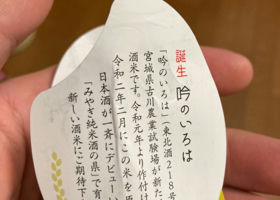 誕生 吟のいろは
「吟のいろは」(東北酒218号
宮城県古川農業試験場が新た
酒米です。令和元年より作付け
令和二年二月にこの米を原
日本酒が一斉にデビュー
「みやぎ純米酒の県」で育
新しい酒米にご期待下